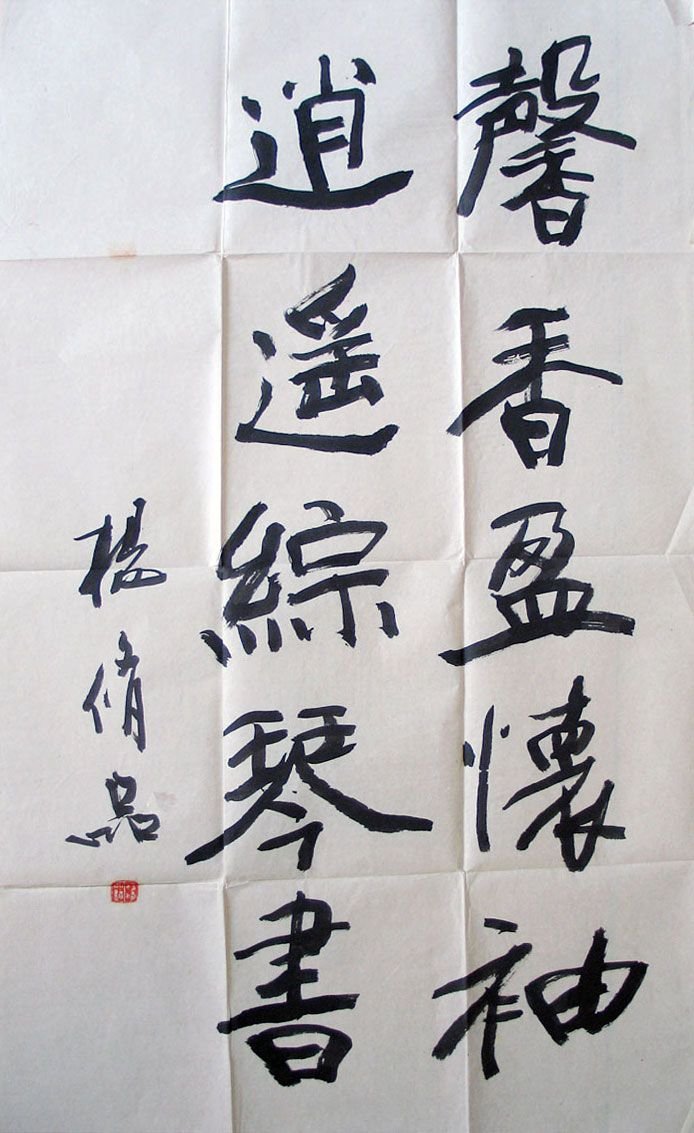 馨香盈懷袖
逍遥綜琴書
楊脩品